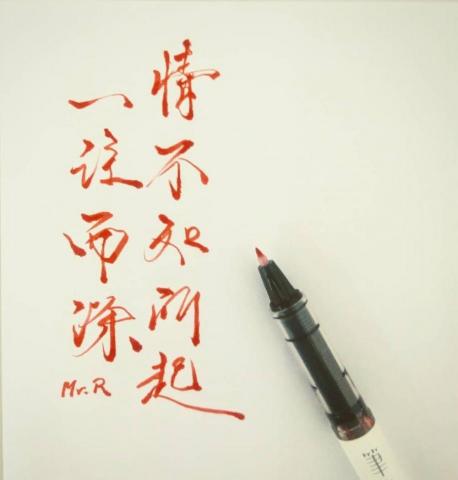 情不知所起
一往而深
Mr.R
筆